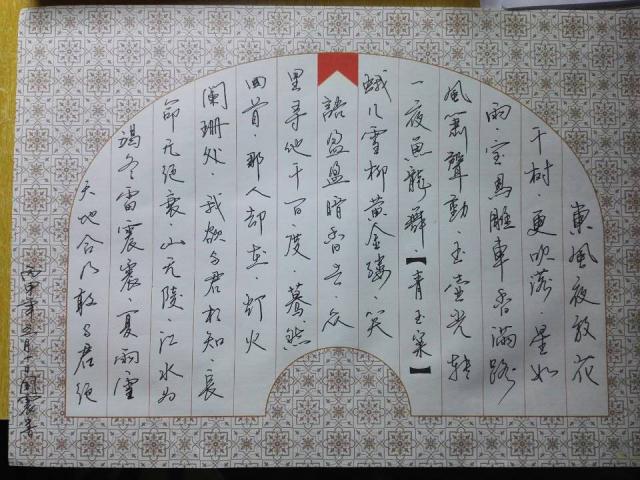 東風夜放花
千树·更吹落·星如
雨·宝馬雕車香滿路
風箫聲動·玉壶光转
一夜魚龍舞·【青玉案】
蛾儿雪柳黄金缕·笑
語盈盈暗香去·众
里寻他千百度·蓦然
回首·那人却在·灯火
阑珊处·我欲与君相知·長
命无绝衰·山无陵·江水为
竭冬雷震震·夏雨雪
天地合乃敢与君绝
丙申年三月